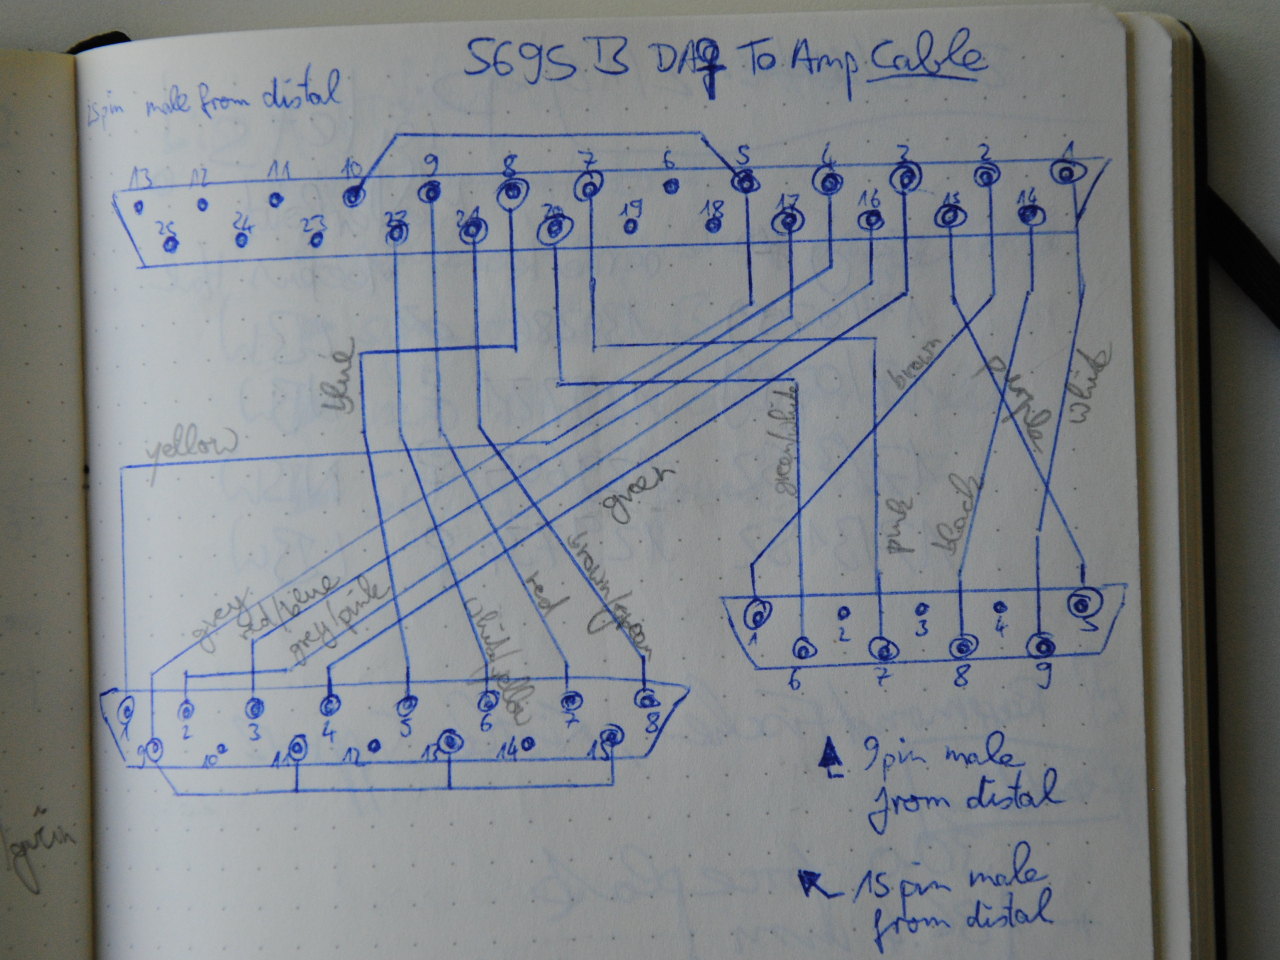 5695 B DAq To Amp Cable
25pin male from distal
13 12 11 10 9 8 7 6 5 4 3 2 1
25 24 23 22 21 20 19 18 17 16 15 14
blue
brown
purple
white
yellow
green/white
green
pink
black
brown/green
red
grey
red/blue
grey/pink
white/yellow
1 2 3 4 5
6 7 8 9
1 2 3 4 5 6 7 8
9 10 11 12 13 14 15
9pin male
from distal
15pin male
from distal